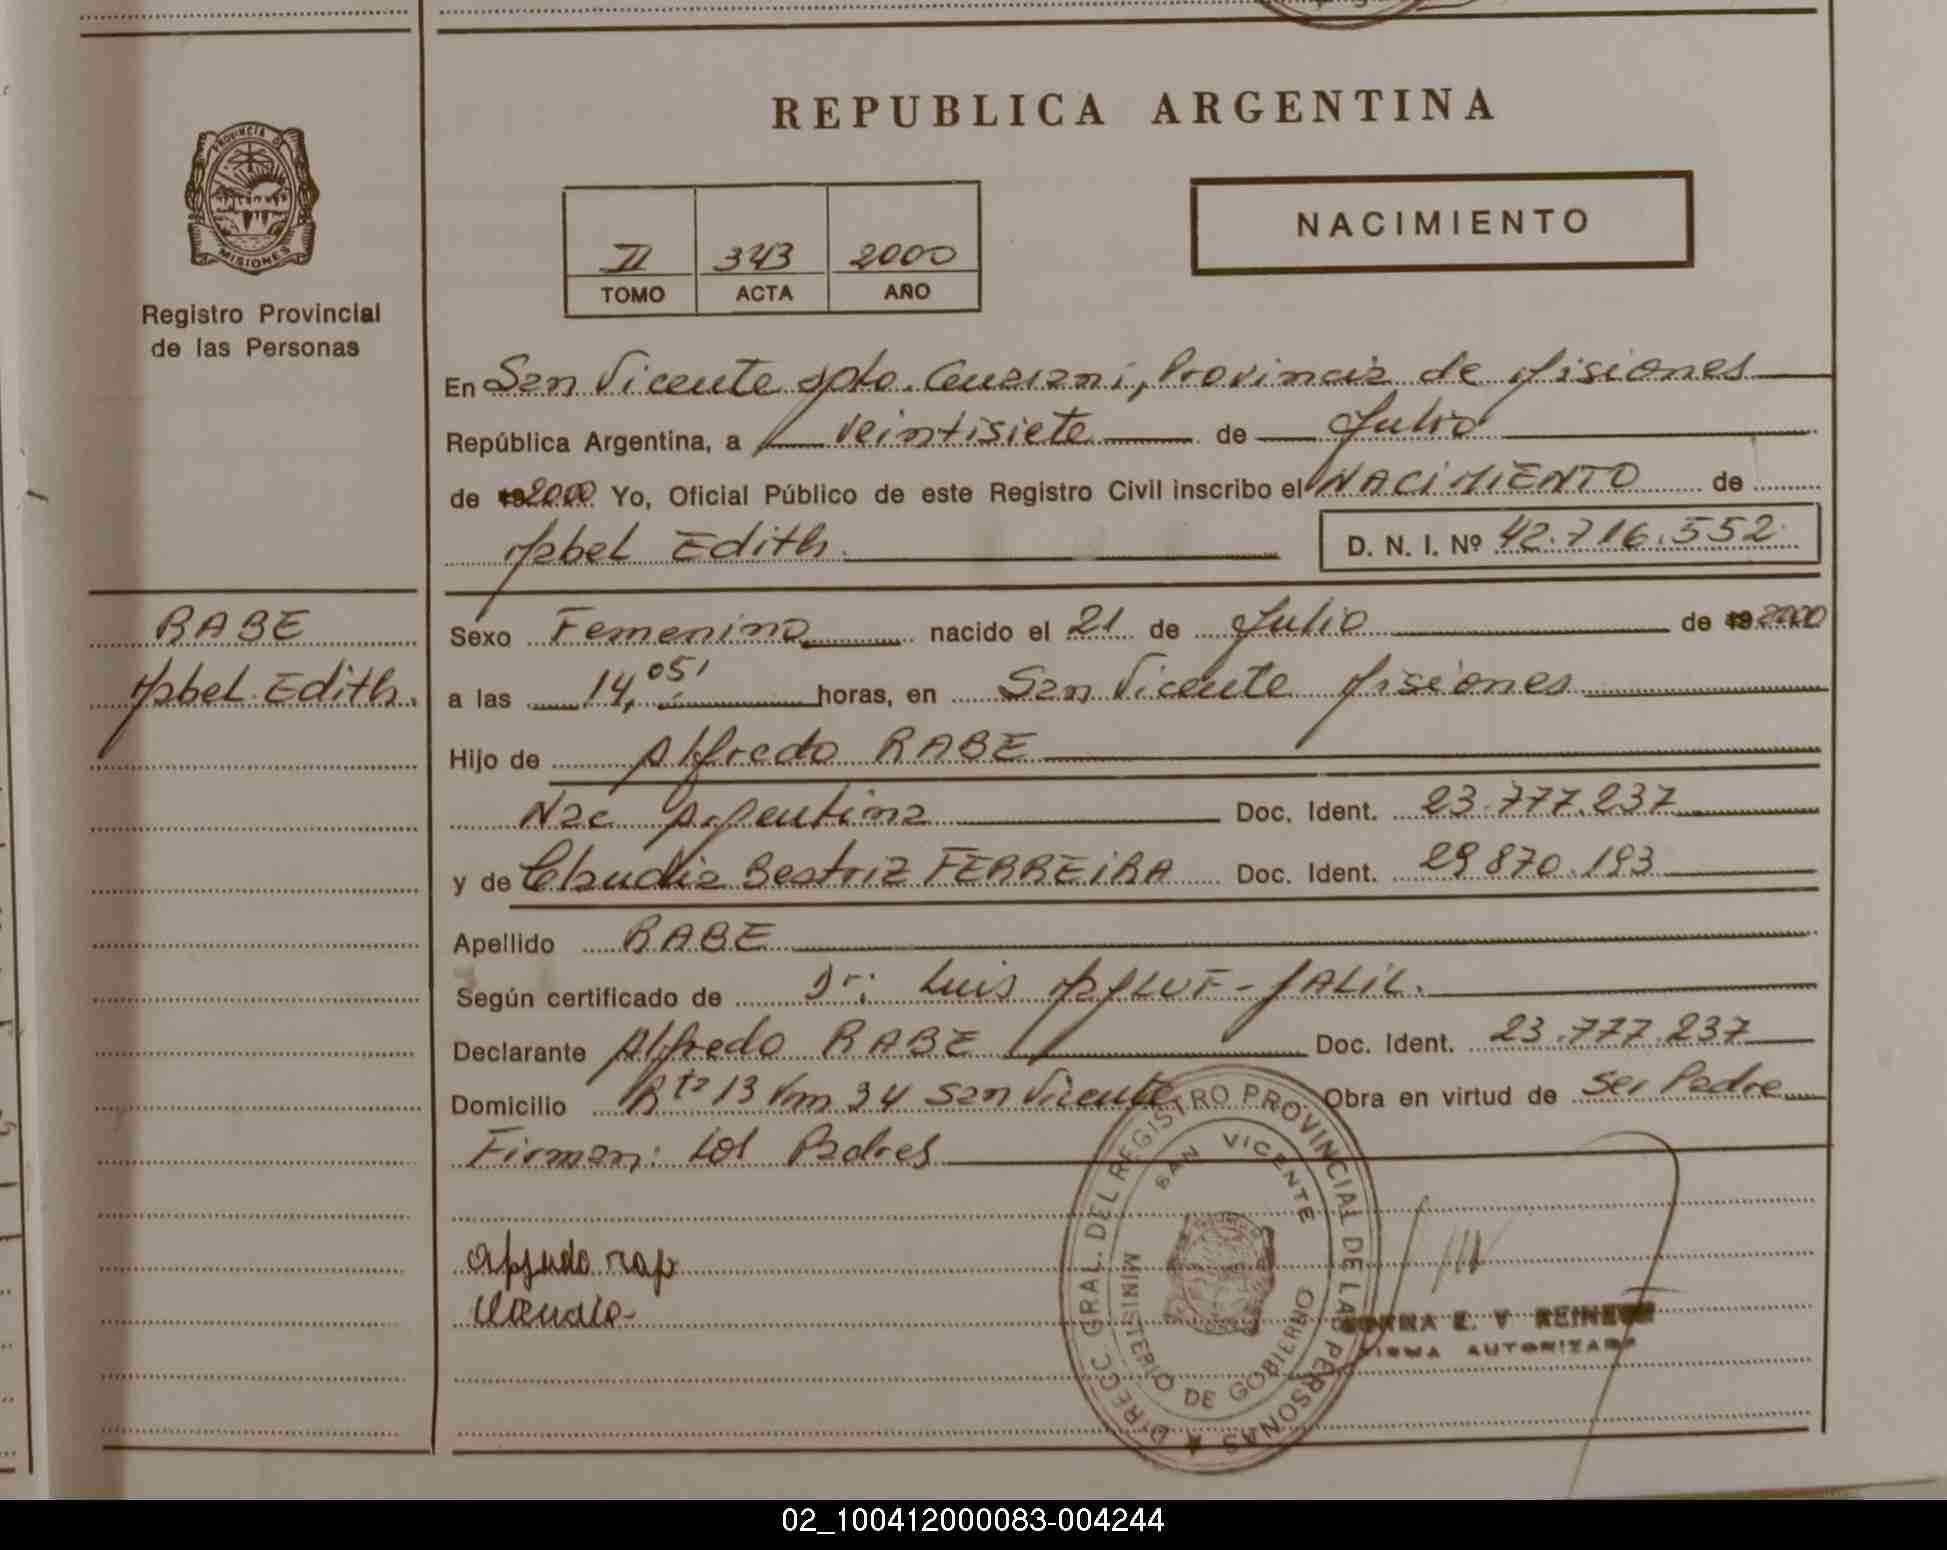 REPUBLICA ARGENTINA
PROVINCIA DE MISIONES
Registro Provincial
de las Personas
NACIMIENTO
II 343 2000
TOMO ACTA AÑO
En San Vicente Dpto. Guaraní, Provincia de Misiones
República Argentina, a veintisiete de Julio
de 192000 Yo, Oficial Público de este Registro Civil inscribo el NACIMIENTO de
Mabel Edith. D. N. I. Nº 42.716.552
RABE
Mabel Edith.
Sexo Femenino nacido el 21 de Julio de 192000
a las 14,05' horas, en San Vicente Misiones
Hijo de Alfredo RABE
Nac Argentina Doc. Ident. 23.777.237
y de Claudia Beatriz FERREIRA Doc. Ident. 29 870.193
Apellido RABE
Según certificado de Dr: Luis JALIL.
Declarante Alfredo RABE Doc. Ident. 23.777.237
Domicilio Rta 13 Km 34 San Vicente Obra en virtud de Ser Padre
Firman: Los Padres
DIRECC. GRAL. DEL REGISTRO PROVINCIAL DE LAS PERSONAS
SAN VICENTE
MINISTERIO DE GOBIERNO
E. V. 
FIRMA AUTORIZADA
02_100412000083-004244